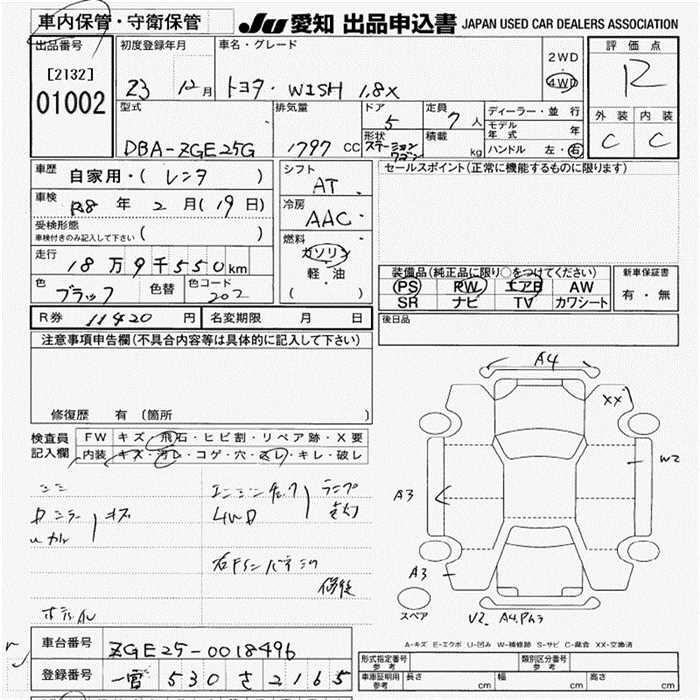 車内保管・守衛保管
JU 愛知 出品申込書 JAPAN USED CAR DEALERS ASSOCIATION
出品番号
[2132]
01002
初度登録年月
23 12月
車名・グレード
トヨタ・WISH 1.8X
2WD
4WD
評価点
R
外装 内装
C C
型式
DBA-ZGE25G
排気量
1797 CC
ドア
5
形状
ステーションワゴン
定員
7 人
積載
kg
ディーラー・並行
モデル年式 年
ハンドル 左・右
車歴
自家用・( レンタ )
車検
R8 年 2 月( 19 日)
受検形態
車検付きのみ記入して下さい ( )
走行
18万9千550km
色
ブラック
色替
色コード
202
シフト
AT
冷房
AAC
燃料
ガソリン
軽・油
( )
セールスポイント(正常に機能するものに限ります)
装備品(純正品に限り○をつけてください)
PS PW エアB AW
SR ナビ TV カワシート
新車保証書
有・無
R券 11420 円
名変期限 月 日
後日品
注意事項申告欄(不具合内容等は具体的に記入して下さい)
修復歴 有(箇所 )
検査員
記入欄
FW キズ・飛石・ヒビ割・リペア跡・X要
内装 キズ・汚レ・コゲ・穴・スレ・キレ・破レ
エンジンチェック
4WD
ランプ
点灯
キズ
修理
ホイル
A4
XX
W2
A3
A3
スペア
U2 A4
A-キズ E-エクボ U-凹み W-補修跡 S-サビ C-腐食 XX-交換済
車台番号
ZGE25-0018496
登録番号
530 さ 2165
形式指定番号
参考
類別区分番号
参考
車庫証明用
参考
長さ cm
幅 cm
高さ cm